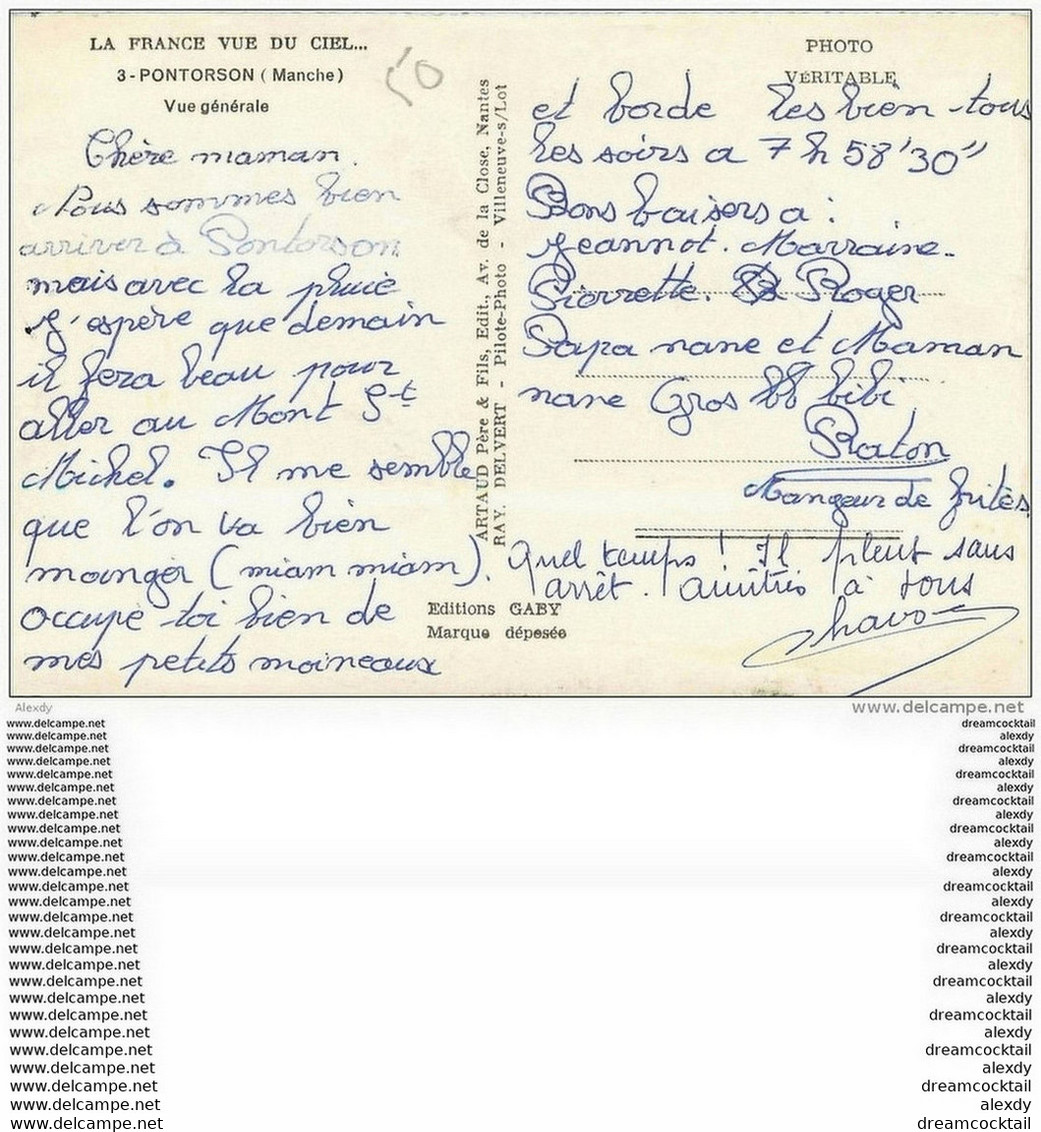 LA FRANCE VUE DU CIEL...
3 - PONTORSON ( Manche )
Vue générale
50
Chère maman.
Nous sommes bien
arriver à Pontorson
mais avec la pluie
J'espère que demain
il fera beau pour
aller au Mont St
Michel. Il me semble
que l'on va bien
manger (miam miam).
occupe toi bien de
mes petits moineaux
ARTAUD Père & Fils, Edit., Av. de la Close, Nantes
RAY. DELVERT - Pilote-Photo - Villeneuve-s/Lot
Editions GABY
Marque déposée
PHOTO
VÉRITABLE
et borde les bien tous
les soirs a 7 h 58'30"
Bons baisers a :
Jeannot. Marraine.
Pierrette. Roger
Papa nane et Maman
nane Gros bb bibi
Raton
Mangeur de frites.
Quel temps ! Il pleut sans
arrêt. Amitiés à tous
Alexdy
www.delcampe.net
www.delcampe.net
www.delcampe.net
www.delcampe.net
www.delcampe.net
www.delcampe.net
www.delcampe.net
www.delcampe.net
www.delcampe.net
www.delcampe.net
www.delcampe.net
www.delcampe.net
www.delcampe.net
www.delcampe.net
www.delcampe.net
www.delcampe.net
www.delcampe.net
www.delcampe.net
www.delcampe.net
www.delcampe.net
www.delcampe.net
www.delcampe.net
www.delcampe.net
www.delcampe.net
www.delcampe.net
www.delcampe.net
www.delcampe.net
www.delcampe.net
www.delcampe.net
dreamcocktail
alexdy
dreamcocktail
alexdy
dreamcocktail
alexdy
dreamcocktail
alexdy
dreamcocktail
alexdy
dreamcocktail
alexdy
dreamcocktail
alexdy
dreamcocktail
alexdy
dreamcocktail
alexdy
dreamcocktail
alexdy
dreamcocktail
alexdy
dreamcocktail
alexdy
dreamcocktail
alexdy
dreamcocktail